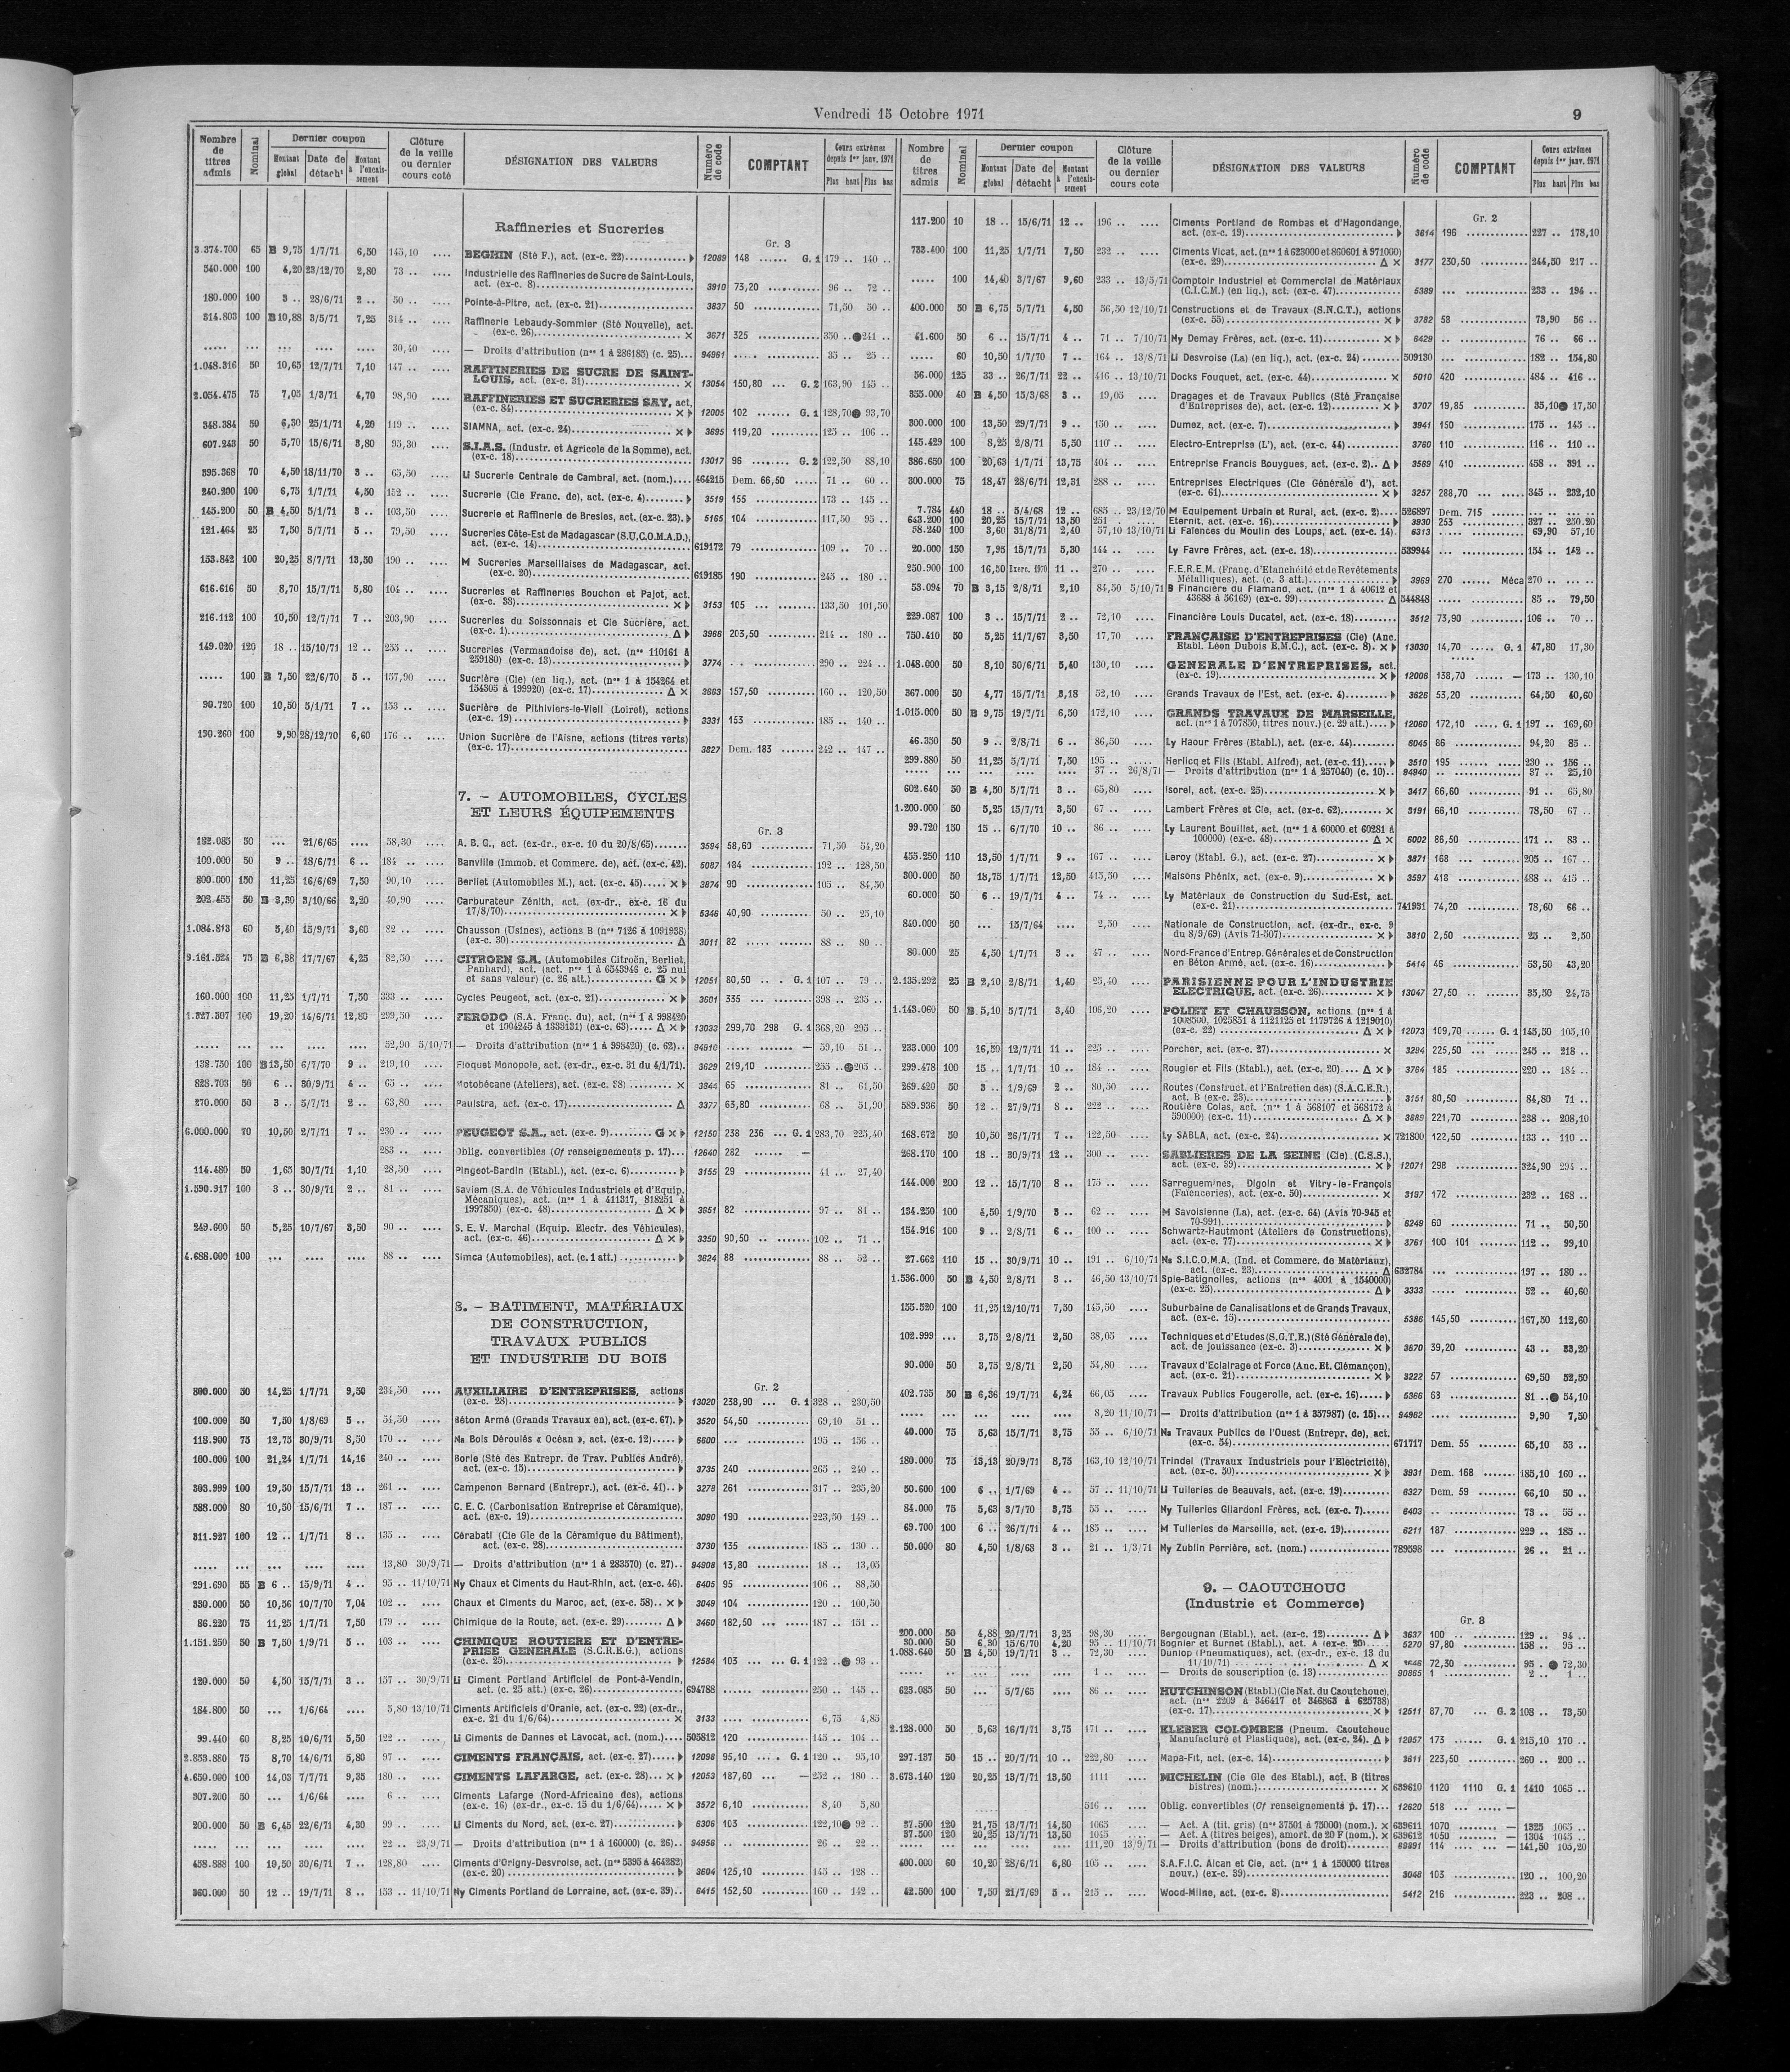 Vendredi 15 Octobre 1971
9
Nombre de titres admis | Nominal | Dernier coupon | Montant global | Date de détacht | Montant à l'encaissement | Clôture de la veille ou dernier cours coté | DÉSIGNATION DES VALEURS | Numéro de code | COMPTANT | Cours extrêmes depuis 1er janv. 1971 | Plus haut | Plus bas
Raffineries et Sucreries
Gr. 3
3.374.700 65 B 9,75 1/7/71 6,50 145,10 .... BEGHIN (Sté F.), act. (ex-c. 22) 12089 148 ...... G. 1 179 .. 140 ..
540.000 100 4,20 23/12/70 2,80 73 .. .... Industrielle des Raffineries de Sucre de Saint-Louis,
act. (ex-c. 8) 3910 73,20 96 .. 72 ..
180.000 100 3 .. 28/6/71 2 .. 50 .. .... Pointe-à-Pitre, act. (ex-c. 21) 3837 50 71,50 50 ..
314.803 100 B 10,88 3/5/71 7,25 314 .. .... Raffinerie Lebaudy-Sommier (Sté Nouvelle), act.
(ex-c. 26) × 3671 325 350 .. ●241 ..
..... ... ... .... .... 30,40 — Droits d'attribution (nos 1 à 286185) (c. 25) 94961 ..... 35 .. 25 ..
1.048.316 50 10,65 12/7/71 7,10 147 .. .... RAFFINERIES DE SUCRE DE SAINT-
LOUIS, act. (ex-c. 31) × 13054 150,80 ... G. 2 163,90 145 ..
2.054.475 75 7,05 1/3/71 4,70 98,90 .... RAFFINERIES ET SUCRERIES SAY, act.
(ex-c. 84) × 12005 102 ....... G. 1 128,70 ● 93,70
348.384 50 6,30 25/1/71 4,20 119 .. .... SIAMNA, act. (ex-c. 24) × 3695 119,20 125 .. 106 ..
607.243 50 5,70 15/6/71 3,80 95,30 .... S.I.A.S. (Industr. et Agricole de la Somme), act.
(ex-c. 18) 13017 96 ....... G. 2 122,50 88,10
395.368 70 4,50 18/11/70 3 .. 65,50 .... Li Sucrerie Centrale de Cambrai, act. (nom.) 464215 Dem. 66,50 71 .. 60 ..
240.200 100 6,75 1/7/71 4,50 152 .. .... Sucrerie (Cie Franc. de), act. (ex-c. 4) 3519 155 173 .. 145 ..
145.200 50 B 4,50 5/1/71 3 .. 103,50 .... Sucrerie et Raffinerie de Bresles, act. (ex-c. 23) 5165 104 117,50 95 ..
121.464 25 7,50 5/7/71 5 .. 79,50 .... Sucreries Côte-Est de Madagascar (S.U.C.O.M.A.D.),
act. (ex-c. 14) 619172 79 109 .. 70 ..
153.842 100 20,25 8/7/71 13,50 190 .. .... M Sucreries Marseillaises de Madagascar, act.
(ex-c. 20) 619185 190 245 .. 180 ..
616.616 50 8,70 15/7/71 5,80 104 .. .... Sucreries et Raffineries Bouchon et Pajot, act.
(ex-c. 38) × 3153 105 133,50 101,50
216.112 100 10,50 12/7/71 7 .. 203,90 Sucreries du Soissonnais et Cie Sucrière, act.
(ex-c. 1) Δ 3966 203,50 214 .. 180 ..
149.020 120 18 .. 15/10/71 12 .. 255 .. .... Sucreries (Vermandoise de), act. (nos 110161 à
259180) (ex-c. 13) 3774 290 .. 224 ..
..... 100 B 7,50 22/6/70 5 .. 157,90 Sucrière (Cie) (en liq.), act. (nos 1 à 154264 et
154305 à 199920) (ex-c. 17) Δ × 3663 157,50 160 .. 120,50
90.720 100 10,50 5/1/71 7 .. 153 .. .... Sucrière de Pithiviers-le-Vieil (Loiret), actions
(ex-c. 19) 3331 153 185 .. 140 ..
190.260 100 9,90 28/12/70 6,60 176 .. .... Union Sucrière de l'Aisne, actions (titres verts)
(ex-c. 17) 3827 Dem. 183 242 .. 147 ..
7. – AUTOMOBILES, CYCLES
ET LEURS ÉQUIPEMENTS
Gr. 3
182.085 50 ... 21/6/65 .... 58,30 .... A. B. G., act. (ex-dr., ex-c. 10 du 20/8/65) 3594 58,60 71,50 54,20
100.000 50 9 .. 18/6/71 6 .. 184 .. .... Banville (Immob. et Commerc. de), act. (ex-c. 42). 5087 184 192 .. 128,50
800.000 150 11,25 16/6/69 7,50 90,10 .... Berliet (Automobiles M.), act. (ex-c. 45) × 3874 90 105 .. 84,50
202.455 50 B 3,30 3/10/66 2,20 40,90 .... Carburateur Zénith, act. (ex-dr., ex-c. 16 du
17/8/70) × 5346 40,90 50 .. 25,10
1.084.813 60 5,40 15/9/71 3,60 82 .. .... Chausson (Usines), actions B (nos 7126 à 1091938)
(ex-c. 30) Δ 3011 82 88 .. 80 ..
9.161.524 75 B 6,38 17/7/67 4,25 82,50 .... CITROEN S.A. (Automobiles Citroën, Berliet,
Panhard), act. (act. nos 1 à 6543946 c. 25 nul
et sans valeur) (c. 26 att.) G × 12051 80,50 G. 1 107 .. 79 ..
160.000 100 11,25 1/7/71 7,50 333 .. .... Cycles Peugeot, act. (ex-c. 21) × 3601 335 398 .. 235 ..
1.327.307 100 19,20 14/6/71 12,80 299,50 .... FERODO (S.A. Franç. du), act. (nos 1 à 998420
et 1004245 à 1333131) (ex-c. 63) Δ × 13033 299,70 298 G. 1 368,20 295 ..
..... ... .... .... .... 52,90 5/10/71 — Droits d'attribution (nos 1 à 998420) (c. 62) 94910 — 59,10 51 ..
138.750 100 B 13,50 6/7/70 9 .. 219,10 .... Floquet Monopole, act. (ex-dr., ex-c. 31 du 4/1/71). 3629 219,10 255 .. ●205 ..
828.703 50 6 .. 30/9/71 4 .. 65 .. .... Motobécane (Ateliers), act. (ex-c. 38) × 3844 65 81 .. 61,50
270.000 50 3 .. 5/7/71 2 .. 63,80 .... Paulstra, act. (ex-c. 17) Δ 3377 63,80 68 .. 51,90
6.000.000 70 10,50 2/7/71 7 .. 230 .. .... PEUGEOT S.A., act. (ex-c. 9) G × 12150 238 236 ... G. 1 283,70 225,40
283 .. .... Oblig. convertibles (Cf renseignements p. 17) 12640 282 —
114.480 50 1,65 30/7/71 1,10 28,50 .... Pingeot-Bardin (Etabl.), act. (ex-c. 6) 3155 29 41 .. 27,40
1.590.917 100 3 .. 30/9/71 2 .. 81 .. .... Saviem (S.A. de Véhicules Industriels et d'Equip.
Mécaniques), act. (nos 1 à 411317, 818251 à
1997850) (ex-c. 48) Δ × 3651 82 97 .. 81 ..
249.600 50 5,25 10/7/67 3,50 90 .. .... S. E. V. Marchal (Equip. Electr. des Véhicules),
act. (ex-c. 46) Δ × 3350 90,50 102 .. 71 ..
4.688.000 100 ... .... .... 88 .. .... Simca (Automobiles), act. (c. 1 att.) 3624 88 88 .. 52 ..
8. – BATIMENT, MATÉRIAUX
DE CONSTRUCTION,
TRAVAUX PUBLICS
ET INDUSTRIE DU BOIS
Gr. 2
800.000 50 14,25 1/7/71 9,50 234,50 .... AUXILIAIRE D'ENTREPRISES, actions
(ex-c. 28) 13020 238,90 ... G. 1 328 .. 230,50
100.000 50 7,50 1/8/69 5 .. 54,50 .... Béton Armé (Grands Travaux en), act. (ex-c. 67). 3520 54,50 69,10 51 ..
118.900 75 12,75 30/9/71 8,50 170 .. .... Na Bois Déroulés « Océan », act. (ex-c. 12) 6600 ... 195 .. 156 ..
100.000 100 21,24 1/7/71 14,16 240 .. .... Borie (Sté des Entrepr. de Trav. Publics André),
act. (ex-c. 15) 3735 240 265 .. 240 ..
303.999 100 19,50 15/7/71 13 .. 261 .. .... Campenon Bernard (Entrepr.), act. (ex-c. 41) 3278 261 317 .. 235,20
588.000 80 10,50 15/6/71 7 .. 187 .. .... C. E. C. (Carbonisation Entreprise et Céramique),
act. (ex-c. 19) 3090 190 223,50 149 ..
311.927 100 12 .. 1/7/71 8 .. 135 .. .... Cérabati (Cie Gle de la Céramique du Bâtiment),
act. (ex-c. 28) 3730 135 185 .. 130 ..
..... ... .... .... .... 13,80 30/9/71 — Droits d'attribution (nos 1 à 283570) (c. 27) 94908 13,80 18 .. 13,05
291.690 55 B 6 .. 15/9/71 4 .. 95 .. 11/10/71 Ny Chaux et Ciments du Haut-Rhin, act. (ex-c. 46). 6405 95 106 .. 88,50
330.000 50 10,56 10/7/70 7,04 102 .. .... Chaux et Ciments du Maroc, act. (ex-c. 58) × 3049 104 120 .. 100,50
86.220 75 11,25 1/7/71 7,50 179 .. .... Chimique de la Route, act. (ex-c. 29) Δ 3460 182,50 187 .. 151 ..
1.151.250 50 B 7,50 1/9/71 5 .. 103 .. .... CHIMIQUE ROUTIERE ET D'ENTRE-
PRISE GENERALE (S.C.R.E.G.), actions
(ex-c. 25) 12584 103 ... G. 1 122 .. ● 93 ..
120.000 50 4,50 15/7/71 3 .. 157 .. 30/9/71 Li Ciment Portland Artificiel de Pont-à-Vendin,
act. (c. 25 att.) (ex-c. 26) 694788 250 .. 145 ..
184.800 50 ... 1/6/64 .... 5,80 13/10/71 Ciments Artificiels d'Oranie, act. (ex-c. 22) (ex-dr.,
ex-c. 21 du 1/6/64) × 3133 6,75 4,85
99.440 60 8,25 10/6/71 5,50 122 .. .... Li Ciments de Dannes et Lavocat, act. (nom.) 505812 120 145 .. 104 ..
2.853.880 75 8,70 14/6/71 5,80 97 .. .... CIMENTS FRANÇAIS, act. (ex-c. 27) 12098 95,10 G. 1 120 .. 95,10
4.650.000 100 14,03 7/7/71 9,35 180 .. .... CIMENTS LAFARGE, act. (ex-c. 28) × 12053 187,60 — 252 .. 180 ..
307.200 50 ... 1/6/64 6 .. .... Ciments Lafarge (Nord-Africaine des), actions
(ex-c. 16) (ex-dr., ex-c. 15 du 1/6/64) × 3572 6,10 8,40 5,80
200.000 50 B 6,45 22/6/71 4,30 99 .. .... Li Ciments du Nord, act. (ex-c. 27) 6306 103 122,10 ● 92 ..
..... ... .... .... .... 22 .. 23/9/71 — Droits d'attribution (nos 1 à 160000) (c. 26) 94956 .. 26 .. 22 ..
458.888 100 10,50 30/6/71 7 .. 128,80 Ciments d'Origny-Desvroise, act. (nos 5395 à 464282)
(ex-c. 20) 3604 125,10 145 .. 128 ..
360.000 50 12 .. 19/7/71 8 .. 153 .. 11/10/71 Ny Ciments Portland de Lorraine, act. (ex-c. 39) 6415 152,50 160 .. 142 ..
Nombre de titres admis | Nominal | Dernier coupon | Montant global | Date de détacht | Montant à l'encaissement | Clôture de la veille ou dernier cours coté | DÉSIGNATION DES VALEURS | Numéro de code | COMPTANT | Cours extrêmes depuis 1er janv. 1971 | Plus haut | Plus bas
Gr. 2
117.200 10 18 .. 15/6/71 12 .. 196 .. .... Ciments Portland de Rombas et d'Hagondange,
act. (ex-c. 19) 3614 196 227 .. 178,10
733.400 100 11,25 1/7/71 7,50 232 .. .... Ciments Vicat, act. (nos 1 à 623000 et 860601 à 971000)
(ex-c. 29) Δ × 3177 230,50 244,50 217 ..
..... 100 14,40 3/7/67 9,60 233 .. 13/5/71 Comptoir Industriel et Commercial de Matériaux
(C.I.C.M.) (en liq.), act. (ex-c. 47) 5389 ... 233 .. 194 ..
400.000 50 B 6,75 5/7/71 4,50 56,50 12/10/71 Constructions et de Travaux (S.N.C.T.), actions
(ex-c. 55) × 3782 58 73,90 56 ..
41.600 50 6 .. 15/7/71 4 .. 71 .. 7/10/71 Ny Demay Frères, act. (ex-c. 11) × 6429 .. 76 .. 66 ..
..... 60 10,50 1/7/70 7 .. 164 .. 13/8/71 Li Desvroise (La) (en liq.), act. (ex-c. 24) 509130 ... 182 .. 154,80
56.000 125 33 .. 26/7/71 22 .. 416 .. 13/10/71 Docks Fouquet, act. (ex-c. 44) × 5010 420 484 .. 416 ..
355.000 40 B 4,50 15/3/68 3 .. 19,05 Dragages et de Travaux Publics (Sté Française
d'Entreprises de), act. (ex-c. 12) × 3707 19,85 35,10 ● 17,50
300.000 100 13,50 29/7/71 9 .. 150 .. .... Dumez, act. (ex-c. 7) 3941 150 175 .. 145 ..
145.429 100 8,25 2/8/71 5,50 110 .. .... Electro-Entreprise (L'), act. (ex-c. 44) 3760 110 116 .. 110 ..
386.650 100 20,63 1/7/71 13,75 404 .. .... Entreprise Francis Bouygues, act. (ex-c. 2) Δ 3569 410 458 .. 391 ..
300.000 75 18,47 28/6/71 12,31 288 .. .... Entreprises Electriques (Cie Générale d'), act.
(ex-c. 61) × 3257 288,70 345 .. 232,10
7.784 440 18 .. 5/4/68 12 .. 685 .. 23/12/70 M Equipement Urbain et Rural, act. (ex-c. 2) 526897 Dem. 715
643.200 100 20,25 15/7/71 13,50 251 Eternit, act. (ex-c. 16) 3930 253 327 .. 250,20
58.240 100 3,60 31/8/71 2,40 57,10 13/10/71 Li Faïences du Moulin des Loups, act. (ex-c. 14). 6313 69,90 57,10
20.000 150 7,95 15/7/71 5,30 144 .. .... Ly Favre Frères, act. (ex-c. 18) 539944 ... 154 .. 142 ..
250.900 100 16,50 Exerc. 1970 11 .. 270 .. .... F.E.R.E.M. (Franç. d'Etanchéité et de Revêtements
Métalliques), act. (c. 3 att.) 3969 270 Méca 270 ..
53.094 70 B 3,15 2/8/71 2,10 84,50 5/10/71 B Financière du Flamand, act. (nos 1 à 40612 et
43688 à 56169) (ex-c. 99) Δ 544848 85 .. 79,50
229.087 100 3 .. 15/7/71 2 .. 72,10 Financière Louis Ducatel, act. (ex-c. 18) 3512 73,90 106 .. 70 ..
750.410 50 5,25 11/7/67 3,50 17,70 FRANÇAISE D'ENTREPRISES (Cie) (Anc.
Etabl. Léon Dubois E.M.C.), act. (ex-c. 8). × 13030 14,70 G. 1 47,80 17,30
1.048.000 50 8,10 30/6/71 5,40 130,10 GENERALE D'ENTREPRISES, act.
(ex-c. 19) × 12006 138,70 — 173 .. 130,10
367.000 50 4,77 15/7/71 3,18 52,10 Grands Travaux de l'Est, act. (ex-c. 4) 3626 53,20 64,50 40,60
1.015.000 50 B 9,75 19/7/71 6,50 172,10 GRANDS TRAVAUX DE MARSEILLE,
act. (nos 1 à 707850, titres nouv.) (c. 29 att.) 12060 172,10 G. 1 197 .. 169,60
46.350 50 9 .. 2/8/71 6 .. 86,50 Ly Haour Frères (Etabl.), act. (ex-c. 44) 6045 86 94,20 85 ..
299.880 50 11,25 5/7/71 7,50 195 .. Herlicq et Fils (Etabl. Alfred), act. (ex-c. 11) 3510 195 230 .. 156 ..
..... ... .... .... 37 .. 26/8/71 — Droits d'attribution (nos 1 à 257040) (c. 10) 94940 .. 37 .. 25,10
602.640 50 B 4,50 5/7/71 3 .. 65,80 Isorel, act. (ex-c. 25) × 3417 66,60 91 .. 65,80
1.200.000 50 5,25 15/7/71 3,50 67 .. .... Lambert Frères et Cie, act. (ex-c. 62) × 3191 66,10 78,50 67 ..
99.720 150 15 .. 6/7/70 10 .. 86 .. .... Ly Laurent Bouillet, act. (nos 1 à 60000 et 60281 à
100000) (ex-c. 48) Δ × 6002 86,50 171 .. 83 ..
455.250 110 13,50 1/7/71 9 .. 167 .. .... Leroy (Etabl. G.), act. (ex-c. 27) × 3871 168 205 .. 167 ..
300.000 50 18,75 1/7/71 12,50 415,50 Maisons Phénix, act. (ex-c. 9) × 3597 418 488 .. 415 ..
60.000 50 6 .. 19/7/71 4 .. 74 .. .... Ly Matériaux de Construction du Sud-Est, act.
(ex-c. 21) 741931 74,20 78,60 66 ..
840.000 50 ... 15/7/64 .... 2,50 Nationale de Construction, act. (ex-dr., ex-c. 9
du 8/9/69) (Avis 71-507) × 3810 2,50 25 .. 2,50
80.000 25 4,50 1/7/71 3 .. 47 .. .... Nord-France d'Entrep. Générales et de Construction
en Béton Armé, act. (ex-c. 16) 5414 46 53,50 43,20
2.135.292 25 B 2,10 2/8/71 1,40 25,40 PARISIENNE POUR L'INDUSTRIE
ELECTRIQUE, act. (ex-c. 26) × 13047 27,50 35,50 24,75
1.143.060 50 B 5,10 5/7/71 3,40 106,20 POLIET ET CHAUSSON, actions (nos 1 à
1008500, 1025851 à 1121125 et 1179726 à 1219010)
(ex-c. 22) Δ × 12073 109,70 G. 1 145,50 105,10
233.000 100 16,50 12/7/71 11 .. 225 .. .... Porcher, act. (ex-c. 27) × 3294 225,50 245 .. 218 ..
299.478 100 15 .. 1/7/71 10 .. 184 .. .... Rougier et Fils (Etabl.), act. (ex-c. 20) Δ × 3764 185 220 .. 184 ..
269.420 50 3 .. 1/9/69 2 .. 80,50 Routes (Construct. et l'Entretien des) (S.A.C.E.R.),
act. B (ex-c. 23) 3151 80,50 84,80 71 ..
589.936 50 12 .. 27/9/71 8 .. 222 .. .... Routière Colas, act. (nos 1 à 568107 et 568172 à
590000) (ex-c. 11) Δ × 3689 221,70 238 .. 208,10
168.672 50 10,50 26/7/71 7 .. 122,50 Ly SABLA, act. (ex-c. 24) × 721800 122,50 133 .. 110 ..
268.170 100 18 .. 30/9/71 12 .. 300 .. .... SABLIERES DE LA SEINE (Cie) (C.S.S.),
act. (ex-c. 39) × 12071 298 324,90 294 ..
144.000 200 12 .. 15/7/70 8 .. 175 .. .... Sarreguemines, Digoin et Vitry-le-François
(Faïenceries), act. (ex-c. 50) × 3197 172 232 .. 168 ..
134.250 100 4,50 1/9/70 3 .. 62 .. .... M Savoisienne (La), act. (ex-c. 64) (Avis 70-945 et
70-991) 6249 60 71 .. 50,50
154.916 100 9 .. 2/8/71 6 .. 100 .. .... Schwartz-Hautmont (Ateliers de Constructions),
act. (ex-c. 77) × 3761 100 101 112 .. 99,10
27.662 110 15 .. 30/9/71 10 .. 191 .. 6/10/71 Na S.I.C.O.M.A. (Ind. et Commerc. de Matériaux),
act. (ex-c. 23) Δ 632784 ... 197 .. 180 ..
1.536.000 50 B 4,50 2/8/71 3 .. 46,50 13/10/71 Spie-Batignolles, actions (nos 4001 à 1540000)
(ex-c. 25) Δ 3333 52 .. 40,60
155.520 100 11,25 12/10/71 7,50 145,50 Suburbaine de Canalisations et de Grands Travaux,
act. (ex-c. 15) 5386 145,50 167,50 112,60
102.999 ... 3,75 2/8/71 2,50 38,05 Techniques et d'Etudes (S.G.T.E.) (Sté Générale de),
act. de jouissance (ex-c. 3) × 3670 39,20 43 .. 33,20
90.000 50 3,75 2/8/71 2,50 54,80 Travaux d'Eclairage et Force (Anc. Et. Clémançon),
act. (ex-c. 21) × 3222 57 69,50 52,50
402.735 50 B 6,36 19/7/71 4,24 66,05 Travaux Publics Fougerolle, act. (ex-c. 16) 5366 63 81 .. ● 54,10
..... ... .... .... .... 8,20 11/10/71 — Droits d'attribution (nos 1 à 357987) (c. 15) 94962 .... 9,90 7,50
40.000 75 5,63 15/7/71 3,75 55 .. 6/10/71 Na Travaux Publics de l'Ouest (Entrepr. de), act.
(ex-c. 54) 671717 Dem. 55 65,10 53 ..
180.000 75 13,13 20/9/71 8,75 163,10 12/10/71 Trindel (Travaux Industriels pour l'Electricité),
act. (ex-c. 50) × 3931 Dem. 168 185,10 160 ..
50.600 100 6 .. 1/7/69 4 .. 57 .. 11/10/71 Li Tuileries de Beauvais, act. (ex-c. 19) 6327 Dem. 59 66,10 50 ..
84.000 75 5,63 3/7/70 3,75 55 .. .... Ny Tuileries Gilardoni Frères, act. (ex-c. 7) 6403 .. 73 .. 55 ..
69.700 100 6 .. 26/7/71 4 .. 185 .. .... M Tuileries de Marseille, act. (ex-c. 19) 6211 187 229 .. 185 ..
50.000 80 4,50 1/8/68 3 .. 21 .. 1/3/71 Ny Zublin Perrière, act. (nom.) 789598 ... 26 .. 21 ..
9. – CAOUTCHOUC
(Industrie et Commerce)
Gr. 3
200.000 50 4,88 20/7/71 3,25 98,30 Bergougnan (Etabl.), act. (ex-c. 12) Δ 3637 100 129 .. 94 ..
30.000 50 6,30 15/6/70 4,20 95 .. 11/10/71 Bognier et Burnet (Etabl.), act. A (ex-c. 20) 5270 97,80 158 .. 95 ..
1.088.640 50 B 4,50 19/7/71 3 .. 72,30 Dunlop (Pneumatiques), act. (ex-dr., ex-c. 13 du
11/10/71) Δ × 3646 72,30 95 .. ● 72,30
..... .. ... .... .... 1 .. .... — Droits de souscription (c. 13) 90865 1 2 .. 1 ..
623.085 50 ... 5/7/65 .... 86 .. .... HUTCHINSON (Etabl.) (Cie Nat. du Caoutchouc),
act. (nos 2209 à 346417 et 346863 à 625738)
(ex-c. 17) × 12511 87,70 G. 2 108 .. 73,50
2.128.000 50 5,63 16/7/71 3,75 171 .. .... KLEBER COLOMBES (Pneum. Caoutchouc
Manufacturé et Plastiques), act. (ex-c. 24). Δ 12057 175 G. 1 215,10 170 ..
297.137 50 15 .. 20/7/71 10 .. 222,80 Mapa-Fit, act. (ex-c. 14) 3611 223,50 260 .. 200 ..
3.673.140 120 20,25 13/7/71 13,50 1111 .... MICHELIN (Cie Gle des Etabl.), act. B (titres
bistres) (nom.) × 639610 1120 1110 G. 1 1410 1065 ..
516 .. .... Oblig. convertibles (Cf renseignements p. 17) 12620 518 —
37.500 120 21,75 13/7/71 14,50 1065 — Act. A (tit. gris) (nos 37501 à 75000) (nom.). × 639611 1070 — 1325 1065 ..
37.500 120 20,25 13/7/71 13,50 1045 — Act. A (titres beiges), amort. de 20 F (nom.). × 639612 1050 — 1304 1045 ..
111,20 13/9/71 — Droits d'attribution (bons de droit) 69691 114 — 141,50 105,20
400.000 60 10,20 28/6/71 6,80 105 .. .... S.A.F.I.C. Alcan et Cie, act. (nos 1 à 150000 titres
nouv.) (ex-c. 39) 3048 103 120 .. 100,20
42.500 100 7,50 21/7/69 5 .. 215 .. .... Wood-Milne, act. (ex-c. 8) 5412 216 223 .. 208 ..